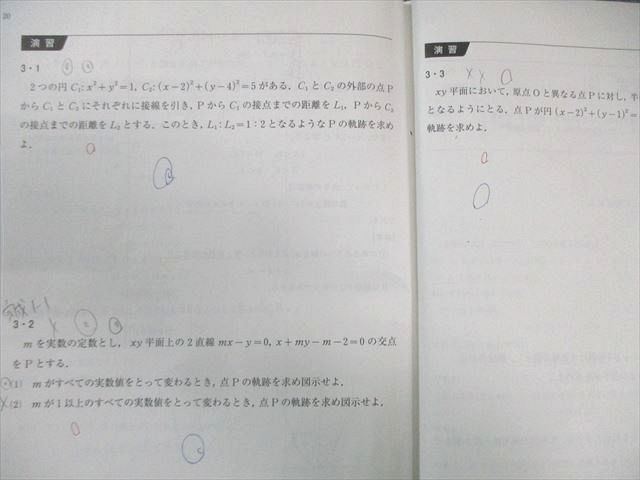 20
演習
3・1
2つの円 C₁: x²+y²=1, C₂: (x−2)²+(y−4)²=5がある. C₁とC₂の外部の点P
からC₁とC₂にそれぞれに接線を引き, PからC₁の接点までの距離をL₁, PからC₂
の接点までの距離をL₂とする. このとき, L₁:L₂=1:2となるようなPの軌跡を求め
よ.
3・2
mを実数の定数とし, xy平面上の2直線 mx−y=0, x+my−m−2=0の交点
をPとする.
(1) mがすべての実数値をとって変わるとき, 点Pの軌跡を求め図示せよ.
(2) mが1以上のすべての実数値をとって変わるとき, 点Pの軌跡を求め図示せよ.
演習
3・3
xy平面において, 原点Oと異なる点Pに対し, 半
となるようにとる. 点Pが円(x−2)²+(y−1)²=
軌跡を求めよ.